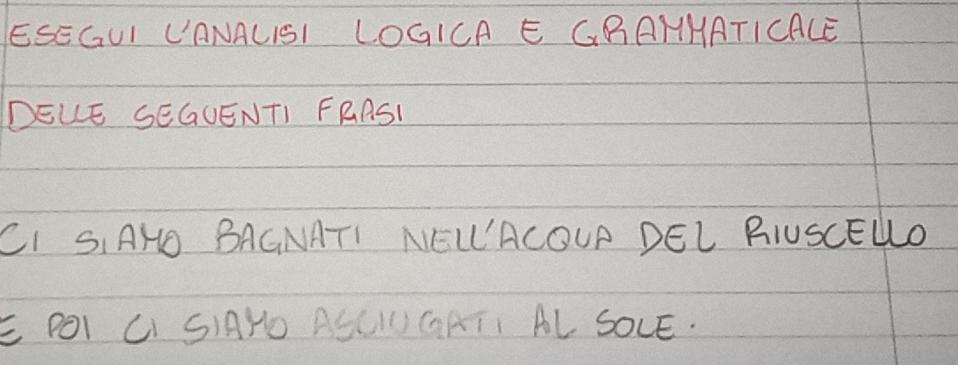 ESEGUI L'ANALISI LOGICA E GRAMMATICALE
DELLE SEGUENTI FRASI
CI SIAMO BAGNATI NELL'ACQUA DEL RIUSCELLO
E POI CI SIAMO ASCIUGATI AL SOLE.